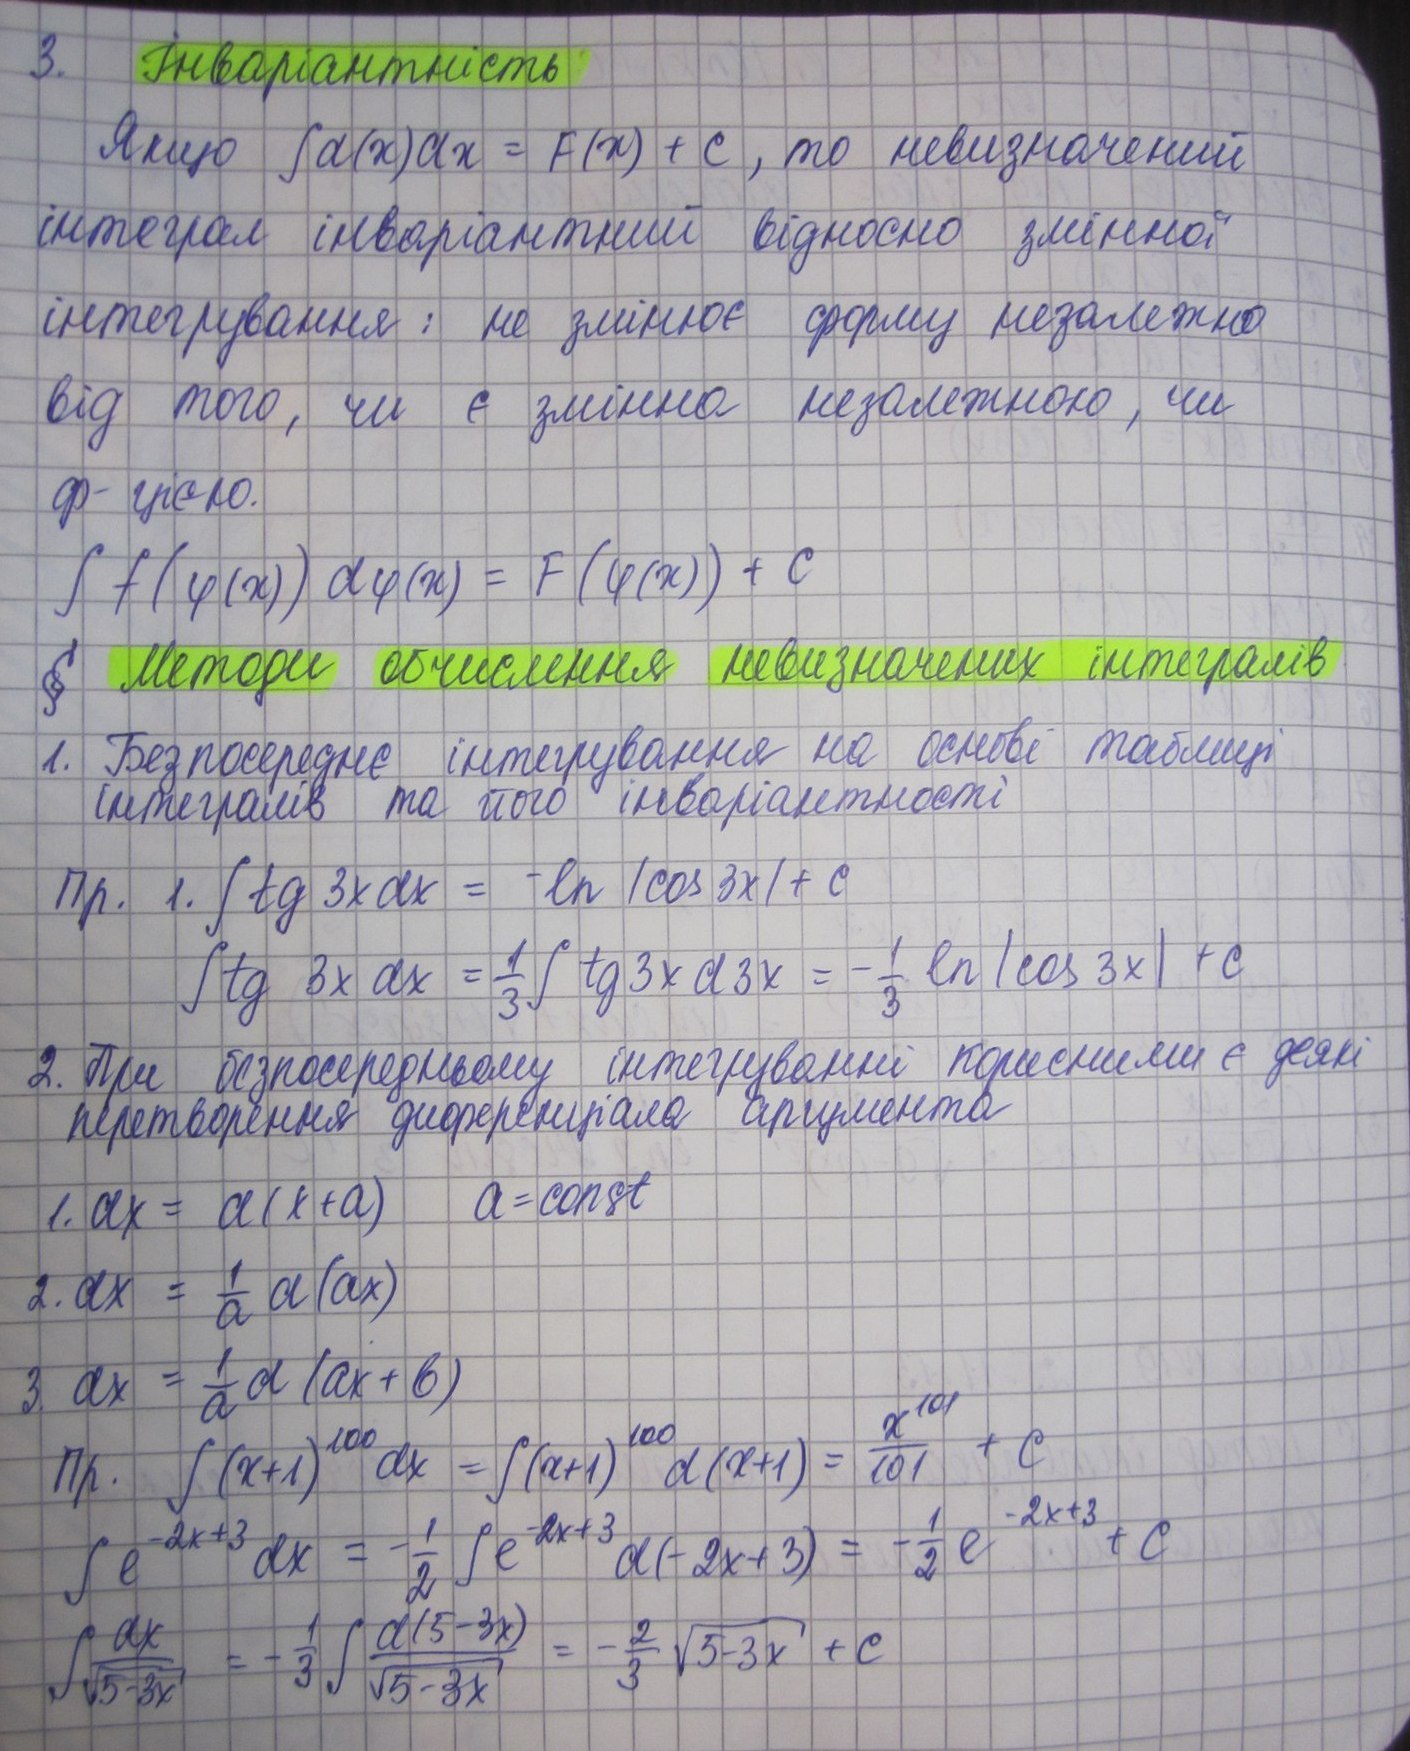 3. Інваріантність
Якщо ∫d(x)dx = F(x) + C, то невизначений
інтеграл інваріантний відносно змінної
інтегрування: не змінює форму незалежно
від того, чи є змінна незалежною, чи
ф-цією.
∫ f(φ(x)) dφ(x) = F(φ(x)) + C
§ Методи обчислення невизначених інтегралів
1. Безпосереднє інтегрування на основі таблиці
інтегралів та його інваріантності
Пр. 1. ∫ tg 3x dx = -ln |cos 3x| + C
∫ tg 3x dx = 1/3 ∫ tg 3x d3x = -1/3 ln |cos 3x| + C
2. При безпосередньому інтегруванні корисними є деякі
перетворення диференціала аргумента
1. dx = d(x+a) a = const
2. dx = 1/a d(ax)
3. dx = 1/a d(ax+b)
Пр. ∫(x+1)^100 dx = ∫(x+1)^100 d(x+1) = x^101/101 + C
∫ e^(-2x+3) dx = -1/2 ∫ e^(-2x+3) d(-2x+3) = -1/2 e^(-2x+3) + C
∫ dx/√(5-3x) = -1/3 ∫ d(5-3x)/√(5-3x) = -2/3 √(5-3x) + C